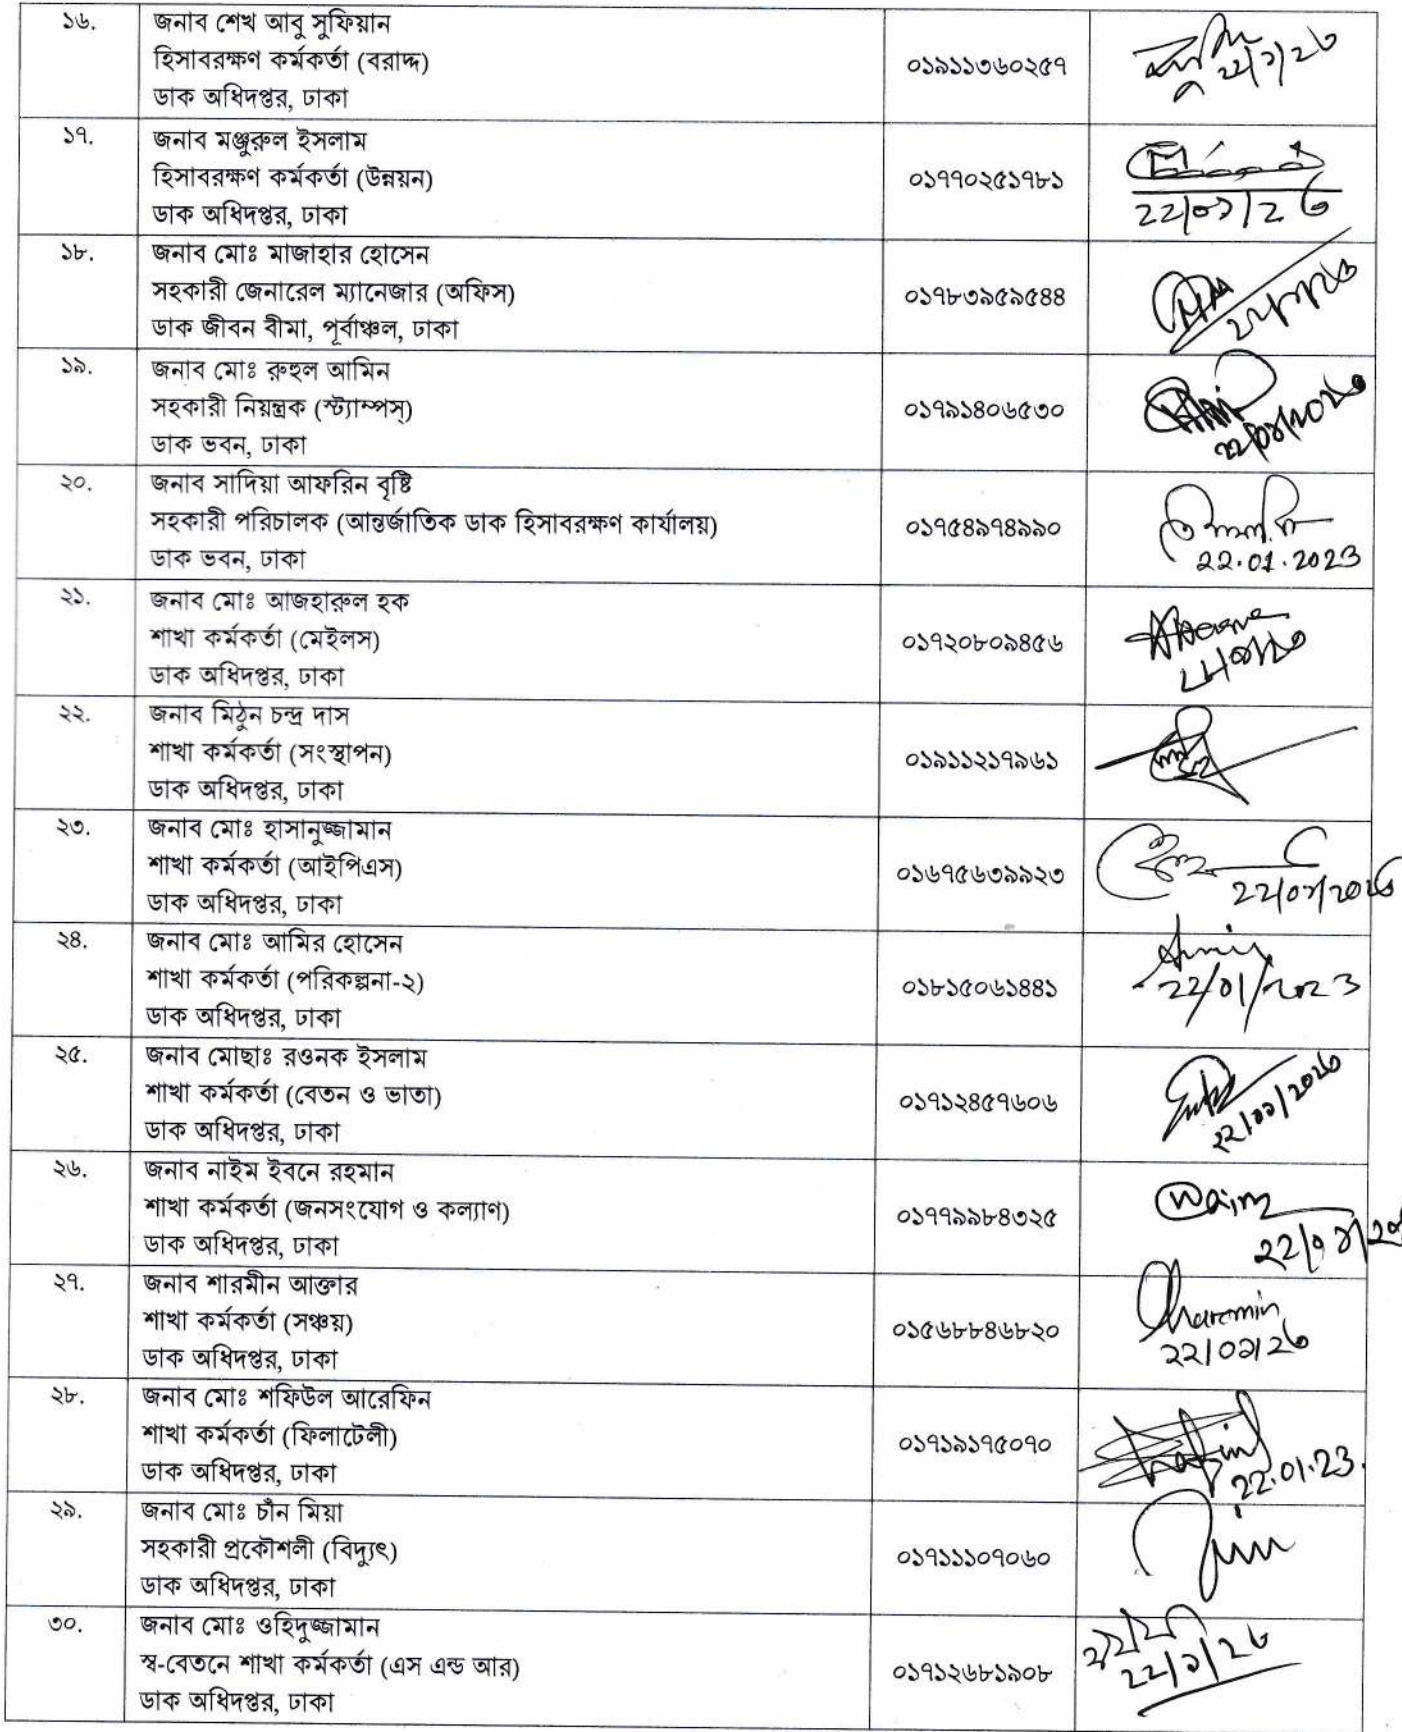 ১৬.
জনাব শেখ আবু সুফিয়ান
হিসাবরক্ষণ কর্মকর্তা (বরাদ্দ)
ডাক অধিদপ্তর, ঢাকা
০১৯১১৩৬০২৫৭
১৭.
জনাব মঞ্জুরুল ইসলাম
হিসাবরক্ষণ কর্মকর্তা (উন্নয়ন)
ডাক অধিদপ্তর, ঢাকা
০১৭৭০২৫১৭৮১
১৮.
জনাব মোঃ মাজাহার হোসেন
সহকারী জেনারেল ম্যানেজার (অফিস)
ডাক জীবন বীমা, পূর্বাঞ্চল, ঢাকা
০১৭৮৩৯৫৯৫৪৪
১৯.
জনাব মোঃ রুহুল আমিন
সহকারী নিয়ন্ত্রক (স্ট্যাম্পস্)
ডাক ভবন, ঢাকা
০১৭৯১৪০৬৫৩০
২০.
জনাব সাদিয়া আফরিন বৃষ্টি
সহকারী পরিচালক (আন্তর্জাতিক ডাক হিসাবরক্ষণ কার্যালয়)
ডাক ভবন, ঢাকা
০১৭৫৪৯৭৪৯৯০
২২.০১.২০২৩
২১.
জনাব মোঃ আজহারুল হক
শাখা কর্মকর্তা (মেইলস)
ডাক অধিদপ্তর, ঢাকা
০১৭২০৮০৯৪৫৬
২২.
জনাব মিঠুন চন্দ্র দাস
শাখা কর্মকর্তা (সংস্থাপন)
ডাক অধিদপ্তর, ঢাকা
০১৯১১২১৭৯৬১
২৩.
জনাব মোঃ হাসানুজ্জামান
শাখা কর্মকর্তা (আইপিএস)
ডাক অধিদপ্তর, ঢাকা
০১৬৭৫৬৩৯৯২৩
২২/০১/২০২৩
২৪.
জনাব মোঃ আমির হোসেন
শাখা কর্মকর্তা (পরিকল্পনা-২)
ডাক অধিদপ্তর, ঢাকা
০১৮১৫০৬১৪৪১
Amir
22/01/2023
২৫.
জনাব মোছাঃ রওনক ইসলাম
শাখা কর্মকর্তা (বেতন ও ভাতা)
ডাক অধিদপ্তর, ঢাকা
০১৭১২৪৫৭৬০৬
২২/০১/২০২৩
২৬.
জনাব নাইম ইবনে রহমান
শাখা কর্মকর্তা (জনসংযোগ ও কল্যাণ)
ডাক অধিদপ্তর, ঢাকা
০১৭৭৯৯৮৪৩২৫
Naim
২৭.
জনাব শারমীন আক্তার
শাখা কর্মকর্তা (সঞ্চয়)
ডাক অধিদপ্তর, ঢাকা
০১৫৬৮৮৪৬৮২০
Sharmin
২২/০১/২৩
২৮.
জনাব মোঃ শফিউল আরেফিন
শাখা কর্মকর্তা (ফিলাটেলী)
ডাক অধিদপ্তর, ঢাকা
০১৭১৯১৭৫০৭০
22.01.23.
২৯.
জনাব মোঃ চাঁন মিয়া
সহকারী প্রকৌশলী (বিদ্যুৎ)
ডাক অধিদপ্তর, ঢাকা
০১৭১১১০৭০৬০
৩০.
জনাব মোঃ ওহিদুজ্জামান
স্ব-বেতনে শাখা কর্মকর্তা (এস এন্ড আর)
ডাক অধিদপ্তর, ঢাকা
০১৭১২৬৮১৯০৮
২২/১/২৩